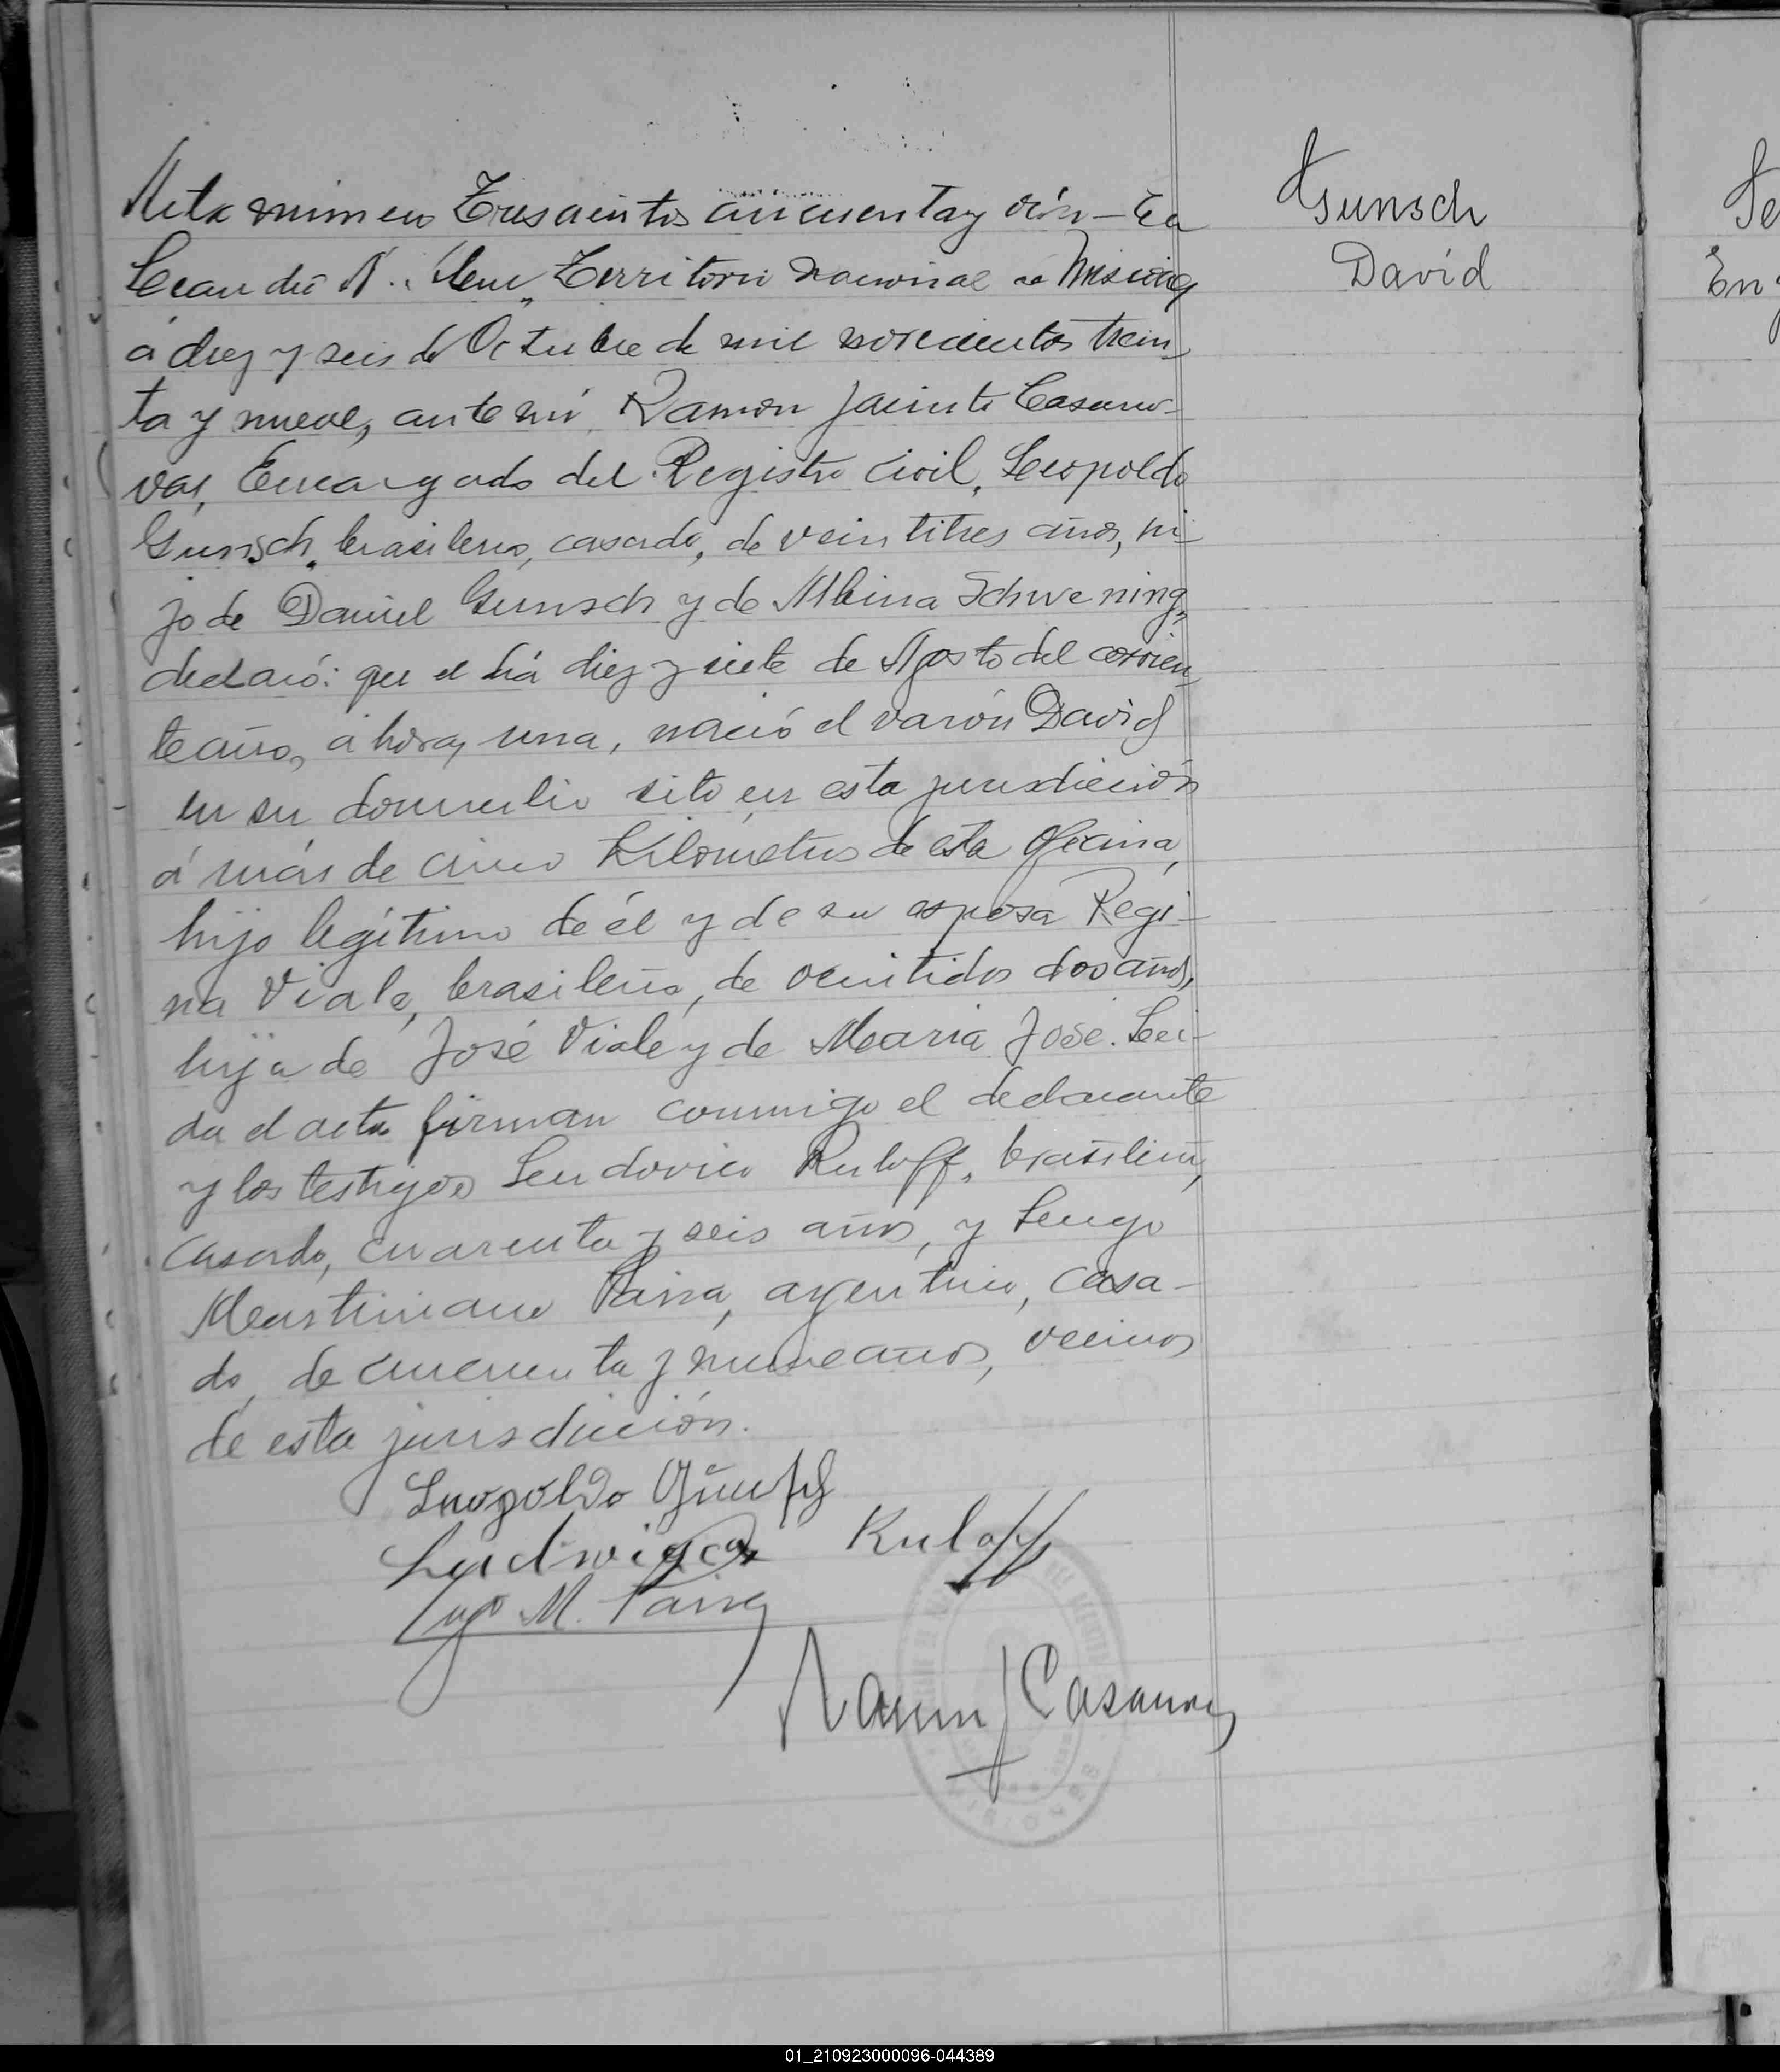 Acta número Trescientos cincuenta y ocho – En
Leandro N. Alem, Territorio Nacional de Misiones
á diez y seis de Octubre de mil novecientos trein
ta y nueve, ante mí Ramón Jacinto Casano-
vas, Encargado del Registro Civil, Leopoldo
Gunsch, brasileno, casado, de veintitres años, hi-
jo de Daniel Gunsch y de Albina Schwening,
declaró: que el día diez y siete de Agosto del corrien
te año, á hora una, nació el varón David
en su domicilio sito en esta jurisdicción
á más de cinco Kilometros de esta Oficina,
hijo legítimo de él y de su esposa Regi-
na Viale, brasileña, de veintidos dos años,
hija de José Viale y de Maria José. Lei-
da el acta firman conmigo el declarante
y los testigos Ludovico Ruloff, brasileño,
casado, cuarenta y seis años, y Lugo
Martiniano Paiva, argentino, casa-
do, de cuarenta y nueve años, vecinos
de esta jurisdicción.
Leopoldo Günsch
Ludwig Ruloff
Lugo M. Paiva
Ramón J Casanovas
Gunsch
David
Se
Eng
01_210923000096-044389